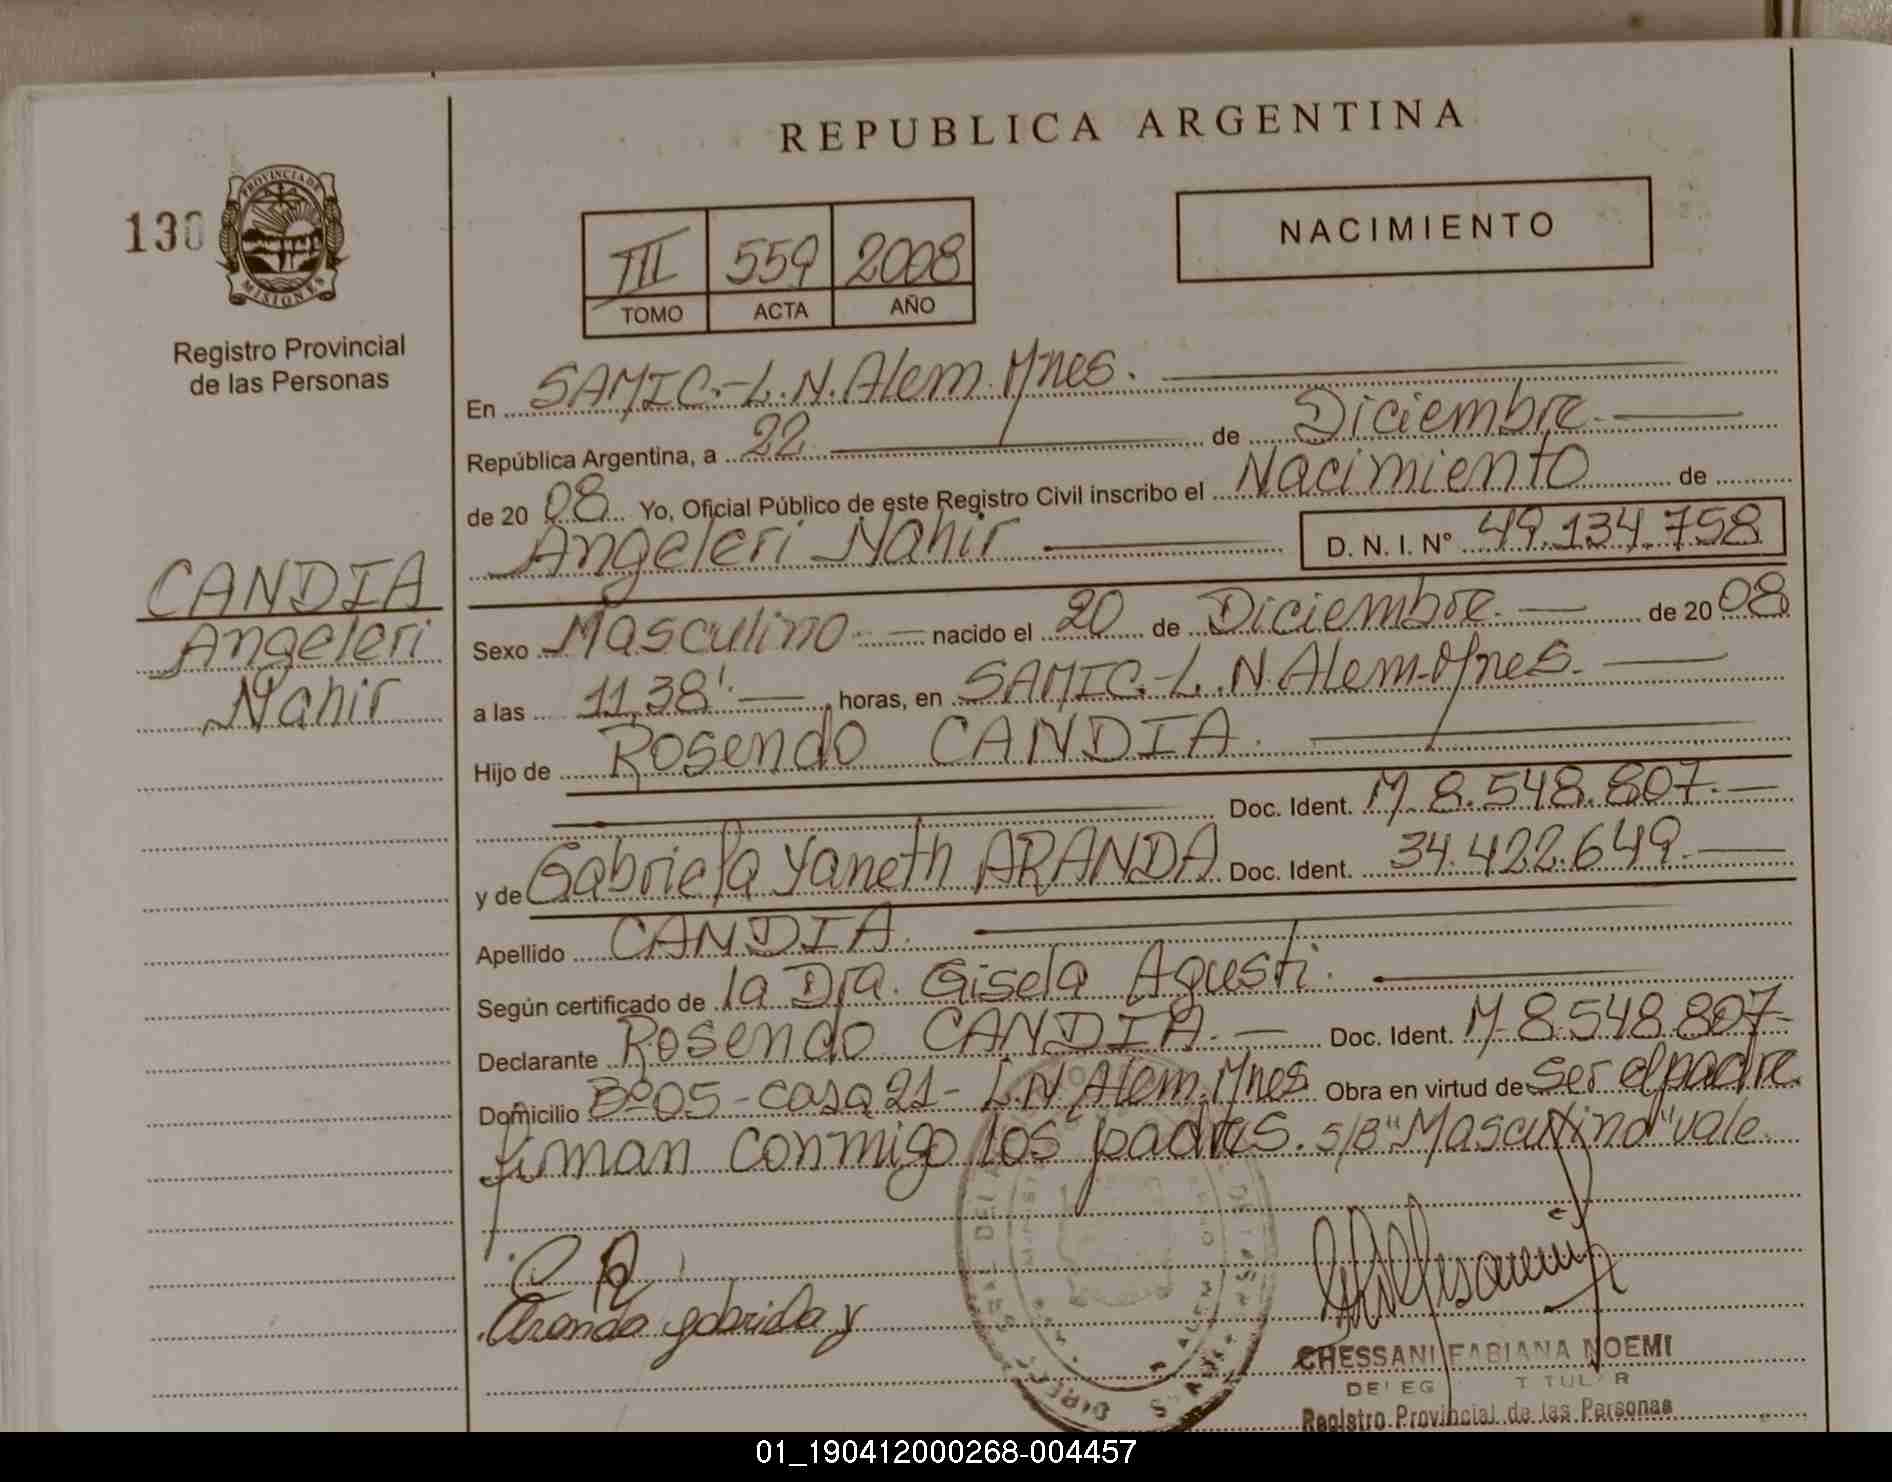 REPUBLICA ARGENTINA
130
PROVINCIA DE
MISIONES
Registro Provincial
de las Personas
III 559 2008
TOMO ACTA AÑO
NACIMIENTO
En SAMIC.-L.N.Alem.Mnes.
República Argentina, a 22 de Diciembre.
de 20 08. Yo, Oficial Público de este Registro Civil inscribo el Nacimiento de
Angeleri Nahir D. N. I. Nº 49.134.758
CANDIA
Angeleri
Nahir
Sexo Masculino nacido el 20 de Diciembre. de 20 08
a las 11,38'. horas, en SAMIC.-L.N.Alem-Mnes.
Hijo de Rosendo CANDIA.
Doc. Ident. M 8.548.807.
y de Gabriela Yaneth ARANDA Doc. Ident. 34.422.649.
Apellido CANDIA.
Según certificado de la Dra. Gisela Agusti.
Declarante Rosendo CANDIA. Doc. Ident. M 8.548.807-
Domicilio Bº05-casa 21- L.N.Alem.Mnes Obra en virtud de ser el padre.
firman conmigo los padres. S/B "Masculino" vale.
Aranda gabriela y
CHESSANI FABIANA NOEMI
Registro Provincial de las Personas
01_190412000268-004457